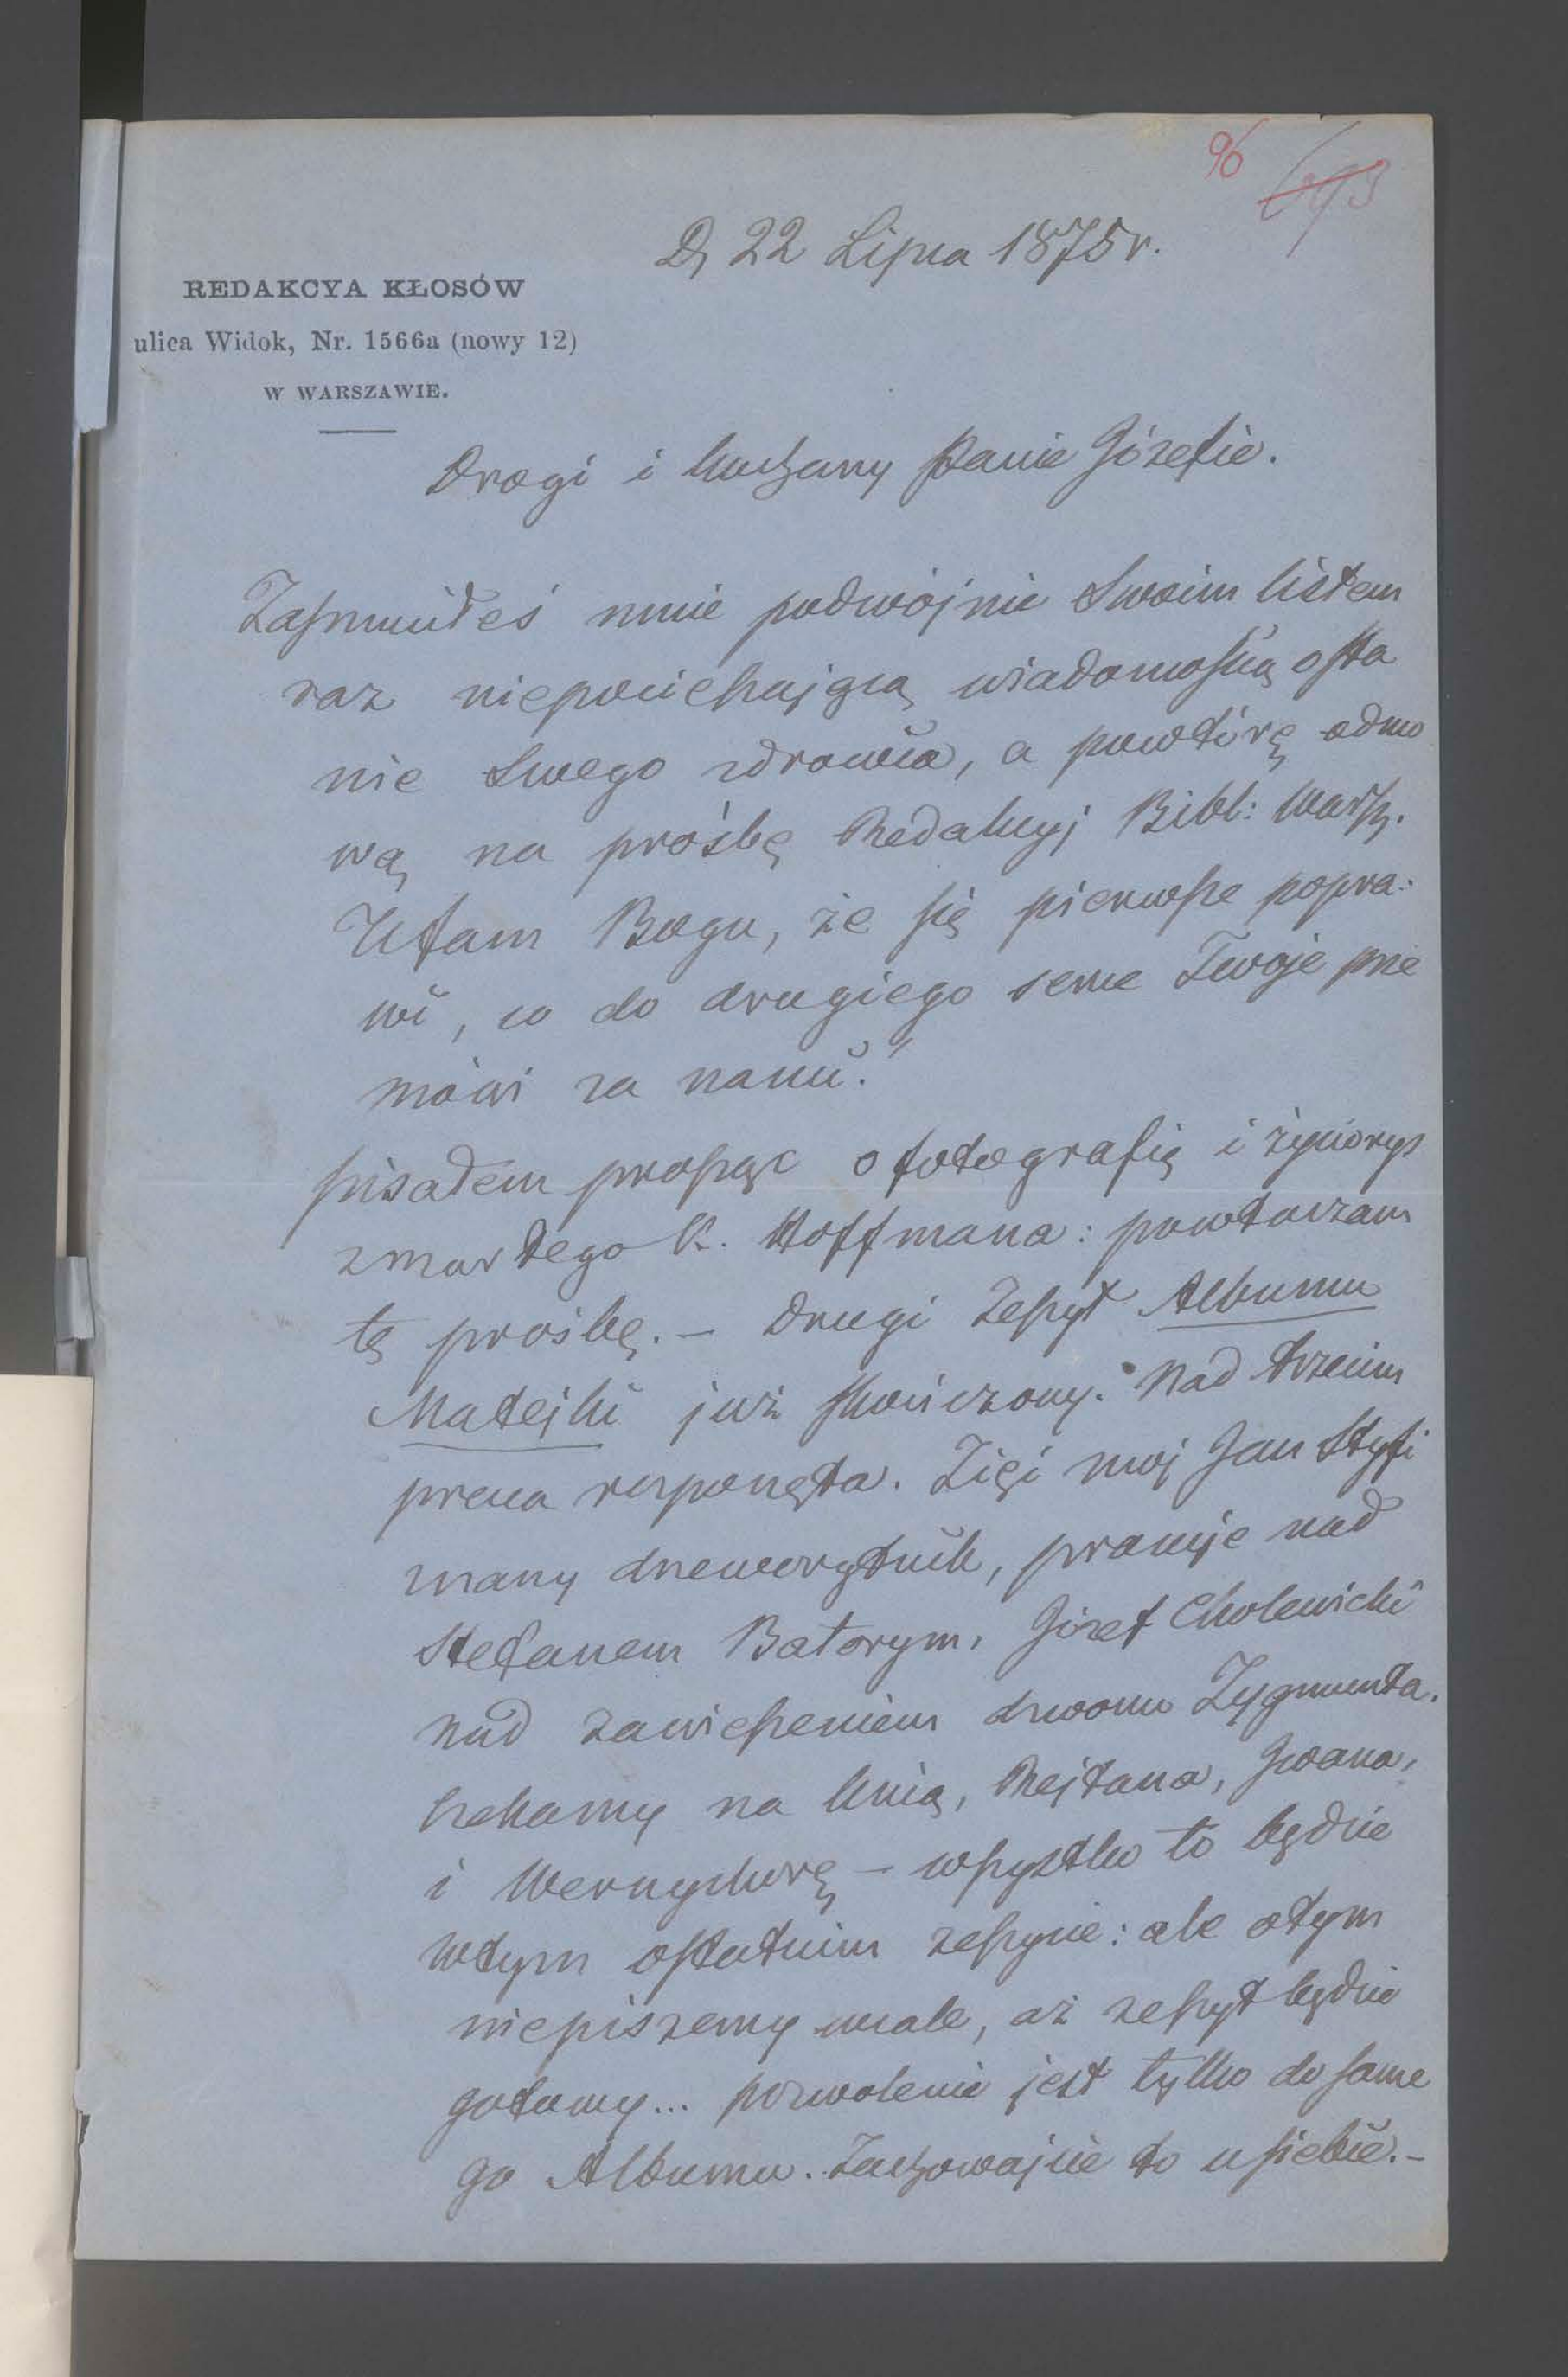 96 693
D, 22 Lipca 1875 r.
REDAKCYA KŁOSÓW
ulica Widok, Nr. 1566a (nowy 12)
W WARSZAWIE.
Drogi i kochany Panie Józefie.
Zasmuciłeś mnie podwójnie Swoim listem
raz niepocieszającą wiadomością o sta
nie Swego zdrowia, a powtórę odmo
wą na prośbę Redakcyj Bibl: Warsz.
Ufam Bogu, że się pierwsze popra-
wi, co do drugiego serce Twoje prze
mówi za nami!
Pisałem prosząc o fotografię i życiorys
zmarłego K. Hoffmana: powtarzam
tę prośbę. — Drugi Zeszyt Albumu
Matejki już skończony. Nad trzecim
praca rozpoczęta. Zięć mój Jan Styfi
znany drzeworytnik, pracuje nad
Stefanem Batorym, Józef Cholewicki
nad zawieszeniem dzwonu Zygmunta.
Czekamy na Unią, Rejtana, Iwana,
i Wernyhorę — wszystko to będzie
w tym ostatnim zeszycie: ale o tym
niepiszemy wcale, aż zeszyt będzie
gotowy... pozwolenie jest tylko do same
go Albumu. Zachowajcie to u siebie. —